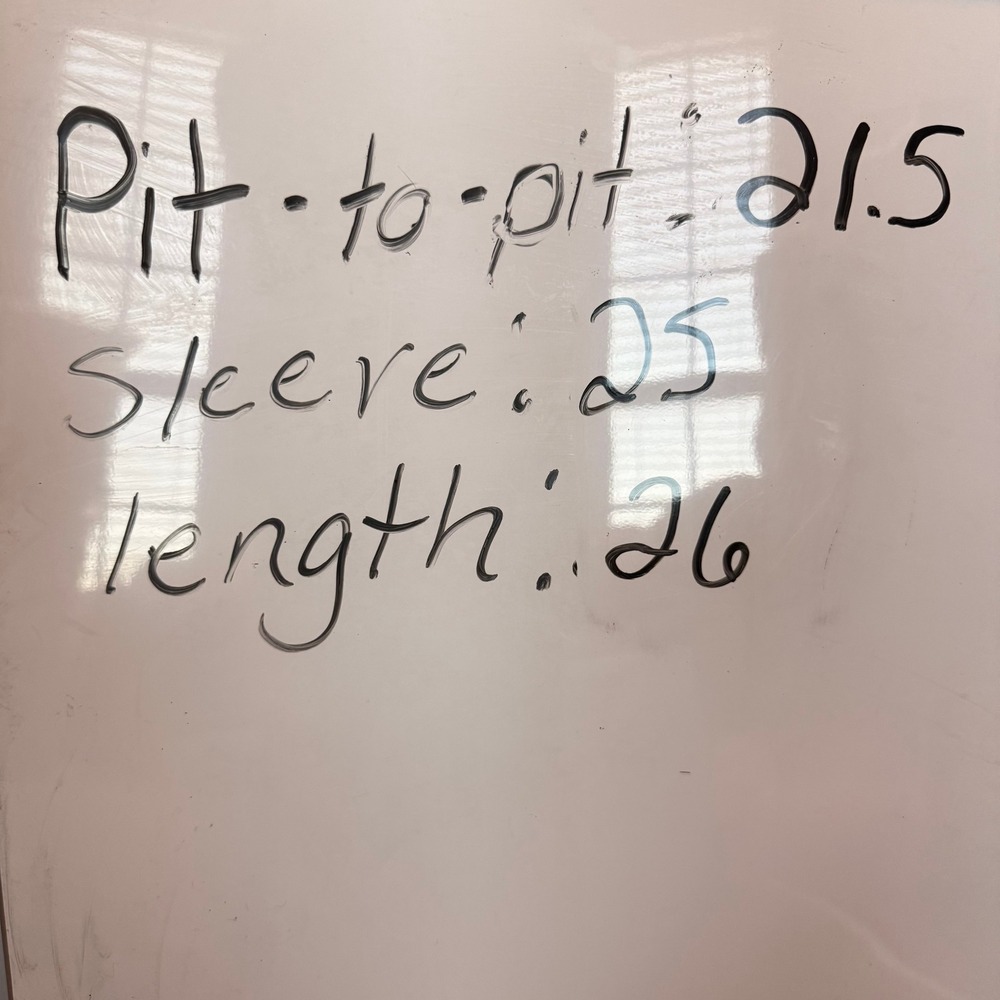 Pit-to-pit: 21.5
Sleeve: 25
length: 26